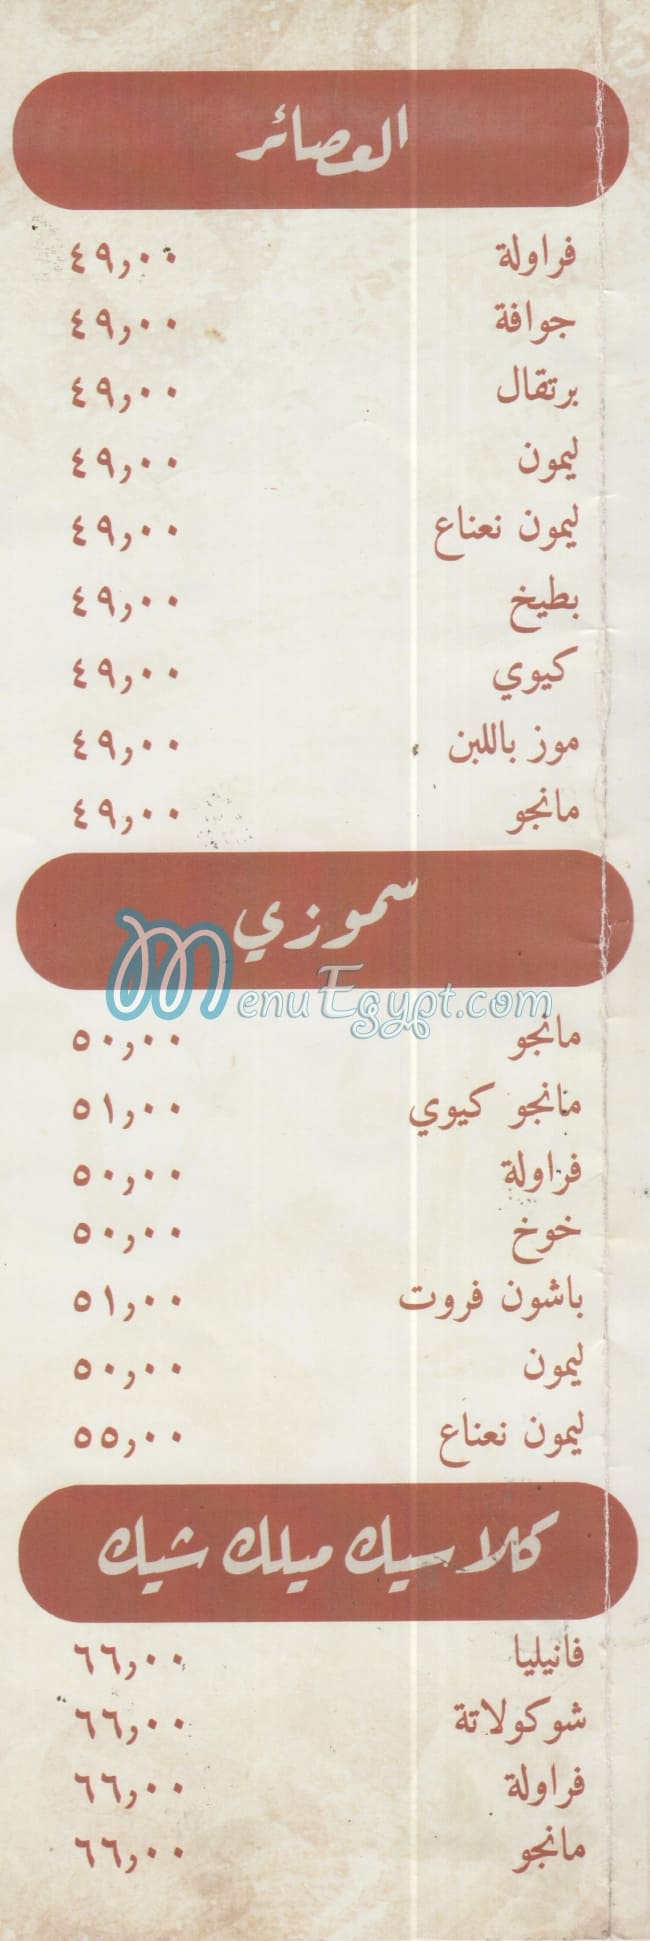 العصائر
فراولة ٤٩,٠٠
جوافة ٤٩,٠٠
برتقال ٤٩,٠٠
ليمون ٤٩,٠٠
ليمون نعناع ٤٩,٠٠
بطيخ ٤٩,٠٠
كيوي ٤٩,٠٠
موز باللبن ٤٩,٠٠
مانجو ٤٩,٠٠
سموزي
MenuEgypt.com
مانجو ٥٠,٠٠
مانجو كيوي ٥١,٠٠
فراولة ٥٠,٠٠
خوخ ٥٠,٠٠
باشون فروت ٥١,٠٠
ليمون ٥٠,٠٠
ليمون نعناع ٥٥,٠٠
كلاسيك ميلك شيك
فانيليا ٦٦,٠٠
شوكولاتة ٦٦,٠٠
فراولة ٦٦,٠٠
مانجو ٦٦,٠٠